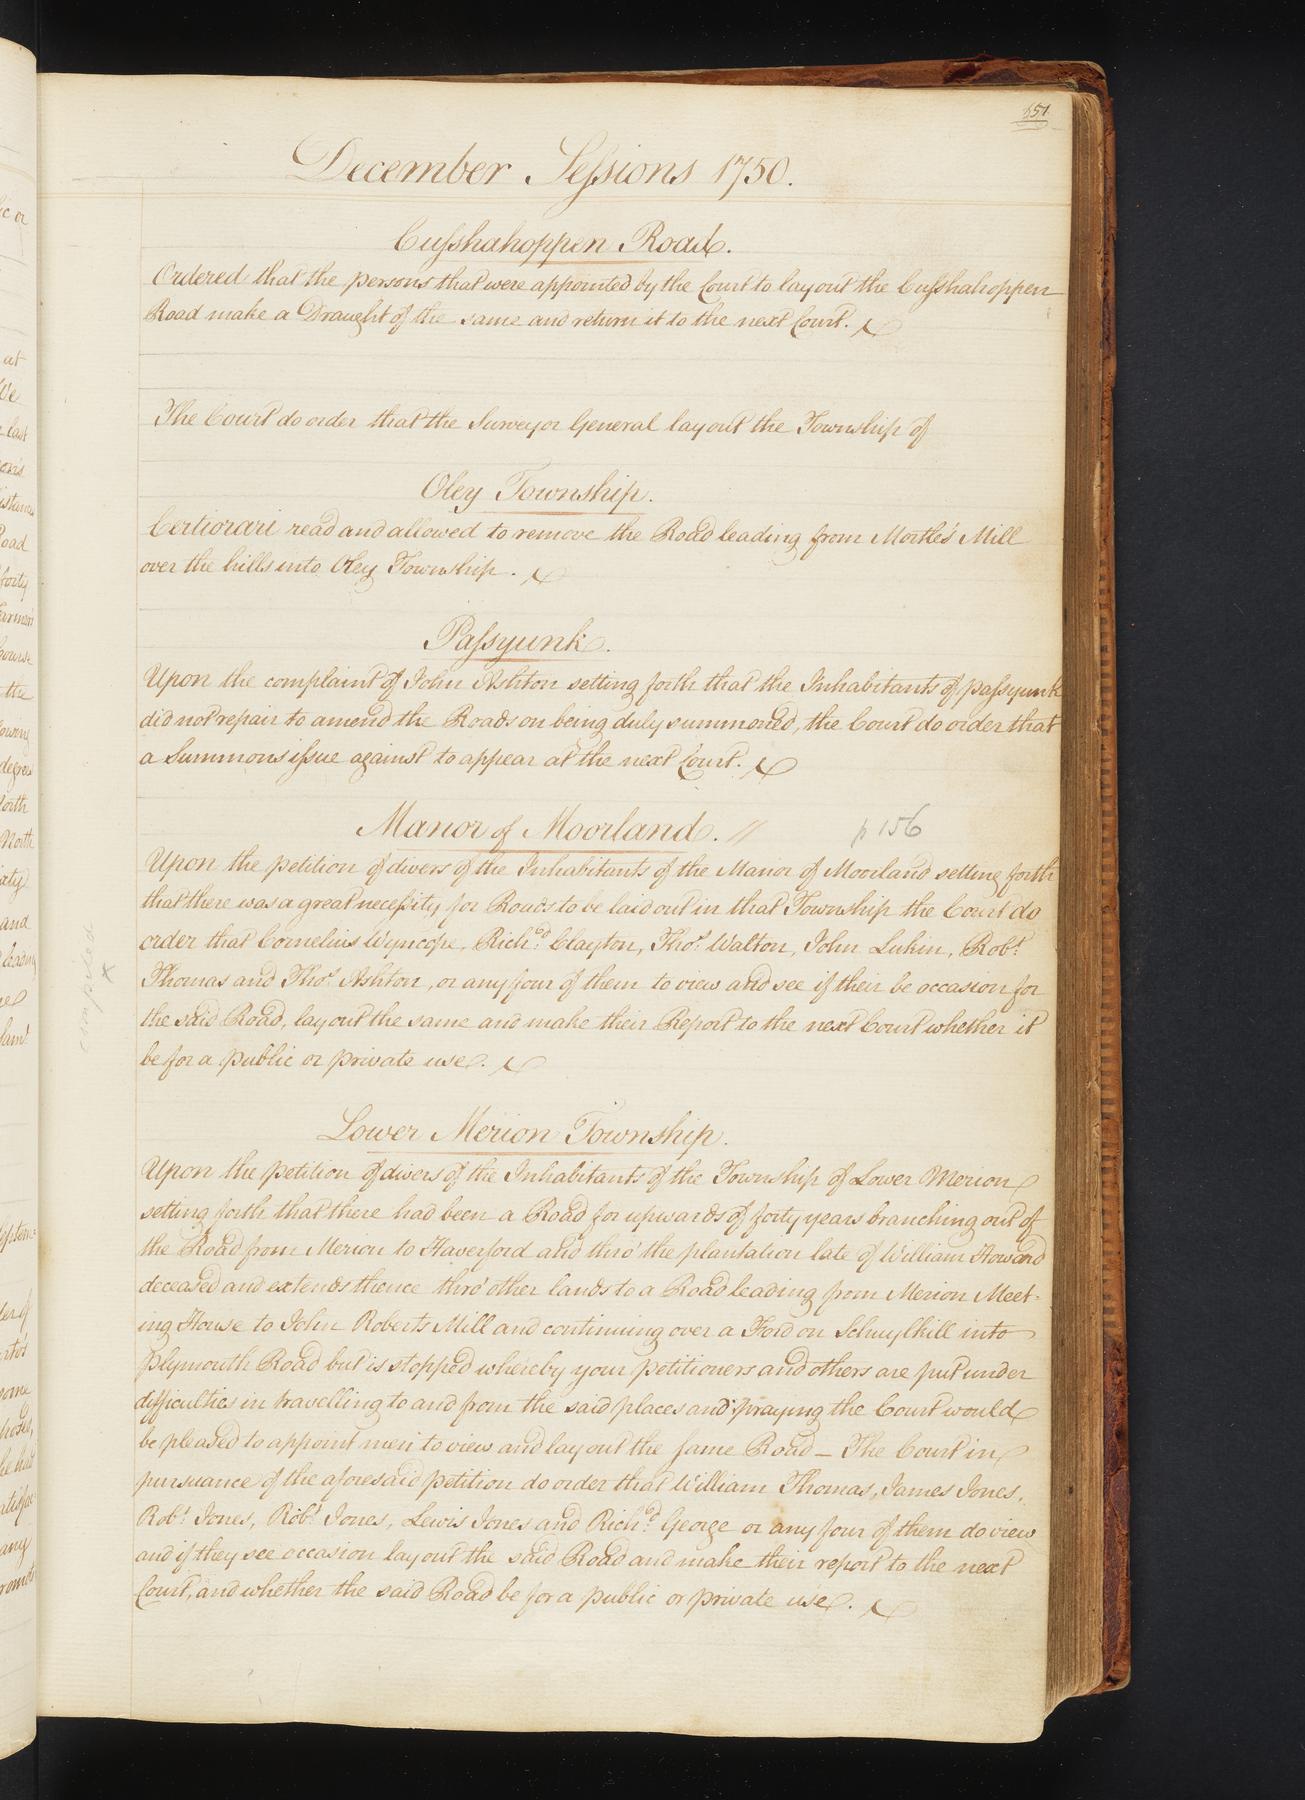 651
December Sessions 1750.
Cusshahoppen Road.
Ordered that the persons that were appointed by the Court to lay out the Cusshahoppen
Road make a Draught of the same and return it to the next Court.
The Court do order that the Surveyor General lay out the Township of
Oley Township.
Certiorari read and allowed to remove the Road leading from Mortle's Mill
over the hills into Oley Township.
Passyunk.
Upon the complaint of John Ashton setting forth that the Inhabitants of passyunk
did not repair to amend the Roads on being duly summoned, the Court do order that
a Summons issue against to appear at the next Court.
Manor of Moorland. // p 156
Upon the petition of divers of the Inhabitants of the Manor of Moorland setting forth
that there was a great necessity for Roads to be laid out in that Township the Court do
order that Cornelius Wyncope, Richd. Clayton, Thos. Walton, John Lukin, Robt.
Thomas and Thos. Ashton, or any four of them to view and see if their be occasion for
the said Road, lay out the same and make their Report to the next Court whether it
be for a public or private use.
copied
x
Lower Merion Township.
Upon the petition of divers of the Inhabitants of the Township of Lower Merion
setting forth that there had been a Road for upwards of forty years branching out of
the Road from Merion to Haverford and thro' the plantation late of William Howard
deceased and extends thence thro' other lands to a Road leading from Merion Meet-
ing House to John Roberts Mill and continuing over a Ford on Schuylkill into
Plymouth Road but is stopped whereby your petitioners and others are put under
difficulties in travelling to and from the said places and praying the Court would
be pleased to appoint men to view and lay out the same Road – The Court in
pursuance of the aforesaid petition do order that William Thomas, James Jones,
Robt. Jones, Robt. Jones, Lewis Jones and Richd. George or any four of them do view
and if they see occasion lay out the said Road and make their report to the next
Court, and whether the said Road be for a public or private use.